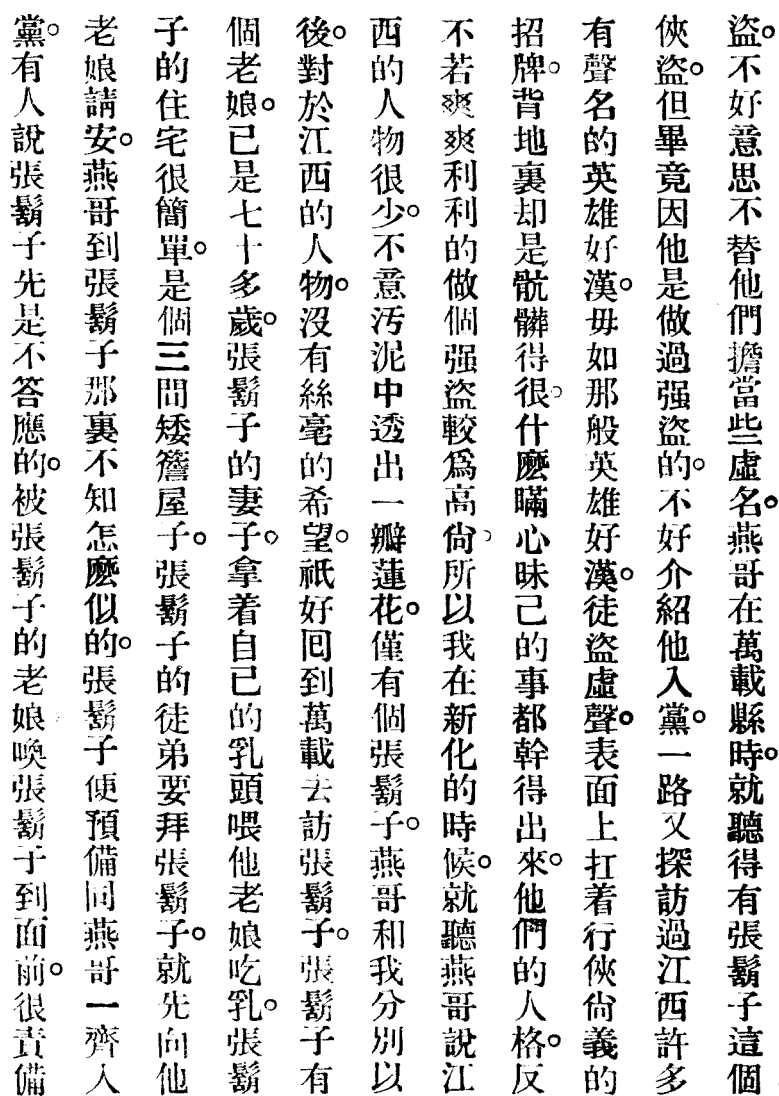 盜。不好意思不替他們擔當些虛名。燕哥在萬載縣時。就聽得有張鬍子這個
俠盜。但畢竟因他是做過强盜的。不好介紹他入黨。一路又探訪過江西許多
有聲名的英雄好漢。毋如那般英雄好漢。徒盜虛聲。表面上扛着行俠尙義的
招牌。背地裏却是骯髒得很。什麽瞞心昧己的事都幹得出來。他們的人格。反
不若爽爽利利的做個强盜較爲高尙。所以我在新化的時候。就聽燕哥說江
西的人物很少。不意汚泥中透出一瓣蓮花。僅有個張鬍子。燕哥和我分別以
後。對於江西的人物。沒有絲毫的希望。祇好回到萬載去訪張鬍子。張鬍子有
個老娘。已是七十多歲。張鬍子的妻子。拿着自己的乳頭喂他老娘吃乳。張鬍
子的住宅很簡單。是個三間矮簷屋子。張鬍子的徒弟要拜張鬍子。就先向他
老娘請安。燕哥到張鬍子那裏不知怎麽似的。張鬍子便預備同燕哥一齊入
黨。有人說張鬍子先是不答應的。被張鬍子的老娘喚張鬍子到面前。很責備